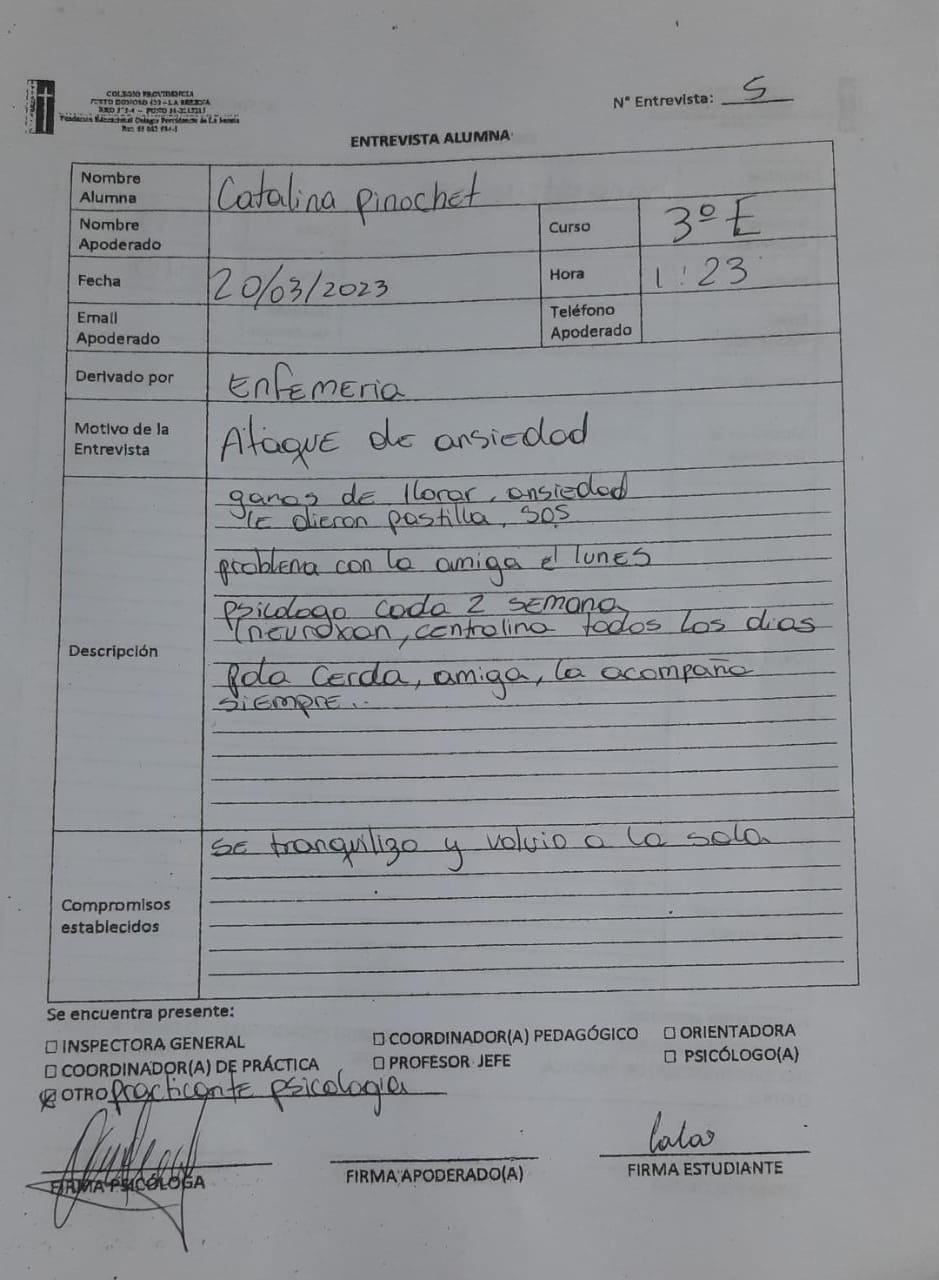 COLEGIO PROVIDENCIA
JUSTO DONOSO 420 - LA SERENA
Fundación Educacional Colegio Providencia de La Serena
N° Entrevista: 5
ENTREVISTA ALUMNA
Nombre Alumna Catalina Pinochet
Nombre Apoderado
Curso 3º E
Fecha 20/03/2023
Hora 1:23
Email Apoderado
Teléfono Apoderado
Derivado por Enfemeria
Motivo de la Entrevista Ataque de ansiedad
Descripción
ganas de llorar, ansiedad
le dieron pastilla, SOS
problema con la amiga el lunes
psicologo cada 2 semana
(neuroxan, centralina todos los dias
Cerda, amiga, la acompaña
siempre..
Compromisos establecidos
se tranquilizo y volvio a la sala
Se encuentra presente:
☐ INSPECTORA GENERAL
☐ COORDINADOR(A) PEDAGÓGICO
☐ ORIENTADORA
☐ COORDINADOR(A) DE PRÁCTICA
☐ PROFESOR JEFE
☐ PSICÓLOGO(A)
☒ OTRO practicante psicologia
FIRMA PSICÓLOGA
FIRMA APODERADO(A)
FIRMA ESTUDIANTE